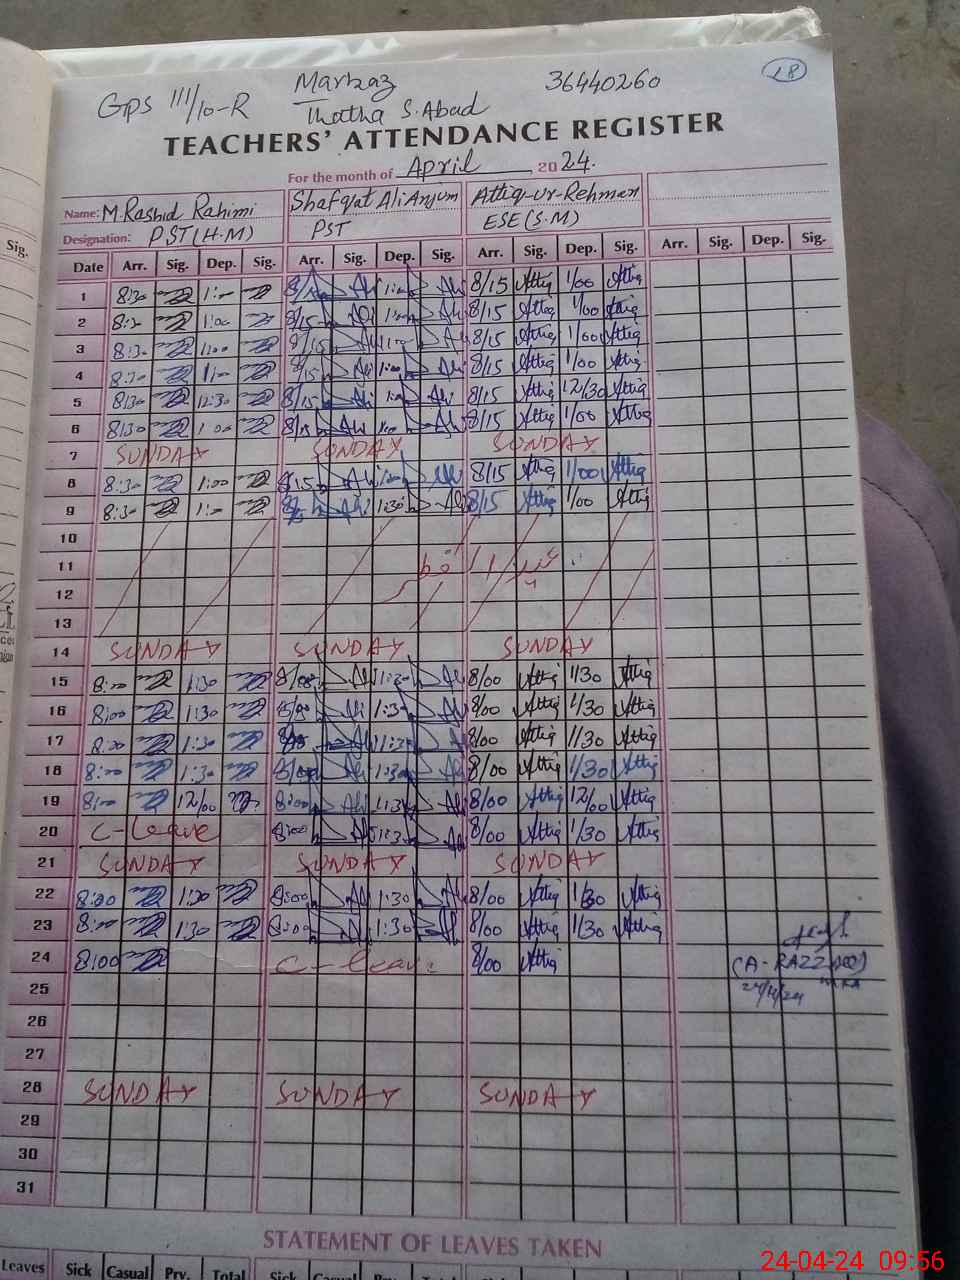 18
Gps 111/10-R Markaz 36440260
Thatha S.Abad
TEACHERS' ATTENDANCE REGISTER
For the month of April 2024.
Name: M. Rashid Rahimi Shafqat Ali Anjum Attiq-ur-Rehman
Designation: PST (H.M) PST ESE (S.M)
Sig. Date Arr. Sig. Dep. Sig. Arr. Sig. Dep. Sig. Arr. Sig. Dep. Sig. Arr. Sig. Dep. Sig.
1 8:30 1:00 8/15 Ali 1:00 Ali 8/15 Attiq 1/00 Attiq
2 1:00 8/15 Ali 1:00 Ali 8/15 Attiq 1/00 Attiq
3 8:30 1:00 8/15 Ali 1:00 Ali 8/15 Attiq 1/00 Attiq
4 8:30 1:00 8/15 Ali 1:00 Ali 8/15 Attiq 1/00 Attiq
5 8:30 12:30 8/15 Ali Ali 8/15 Attiq 12/30 Attiq
6 8:30 1:00 8/15 Ali 1:00 Ali 8/15 Attiq 1/00 Attiq
7 SUNDAY SUNDAY SUNDAY
8 8:30 1:00 8/15 Ali Ali 8/15 Attiq 1/00 Attiq
9 8:30 1:00 Ali 1:30 Ali 8/15 Attiq 1/00 Attiq
10
11
12
13
14 SUNDAY SUNDAY SUNDAY
15 8:00 1:30 8/00 Ali 1:30 Ali 8/00 Attiq 1/30 Attiq
16 8:00 1:30 8/00 Ali 1:30 Ali 8/00 Attiq 1/30 Attiq
17 8:00 1:30 Ali 1:30 Ali 8/00 Attiq 1/30 Attiq
18 8:00 1:30 8/00 Ali 1:30 Ali 8/00 Attiq 1/30 Attiq
19 8:00 12/00 8:00 Ali Ali 8/00 Attiq 12/00 Attiq
20 C-Leave 8:00 Ali 1:30 Ali 8/00 Attiq 1/30 Attiq
21 SUNDAY SUNDAY SUNDAY
22 8:00 1:30 8:00 Ali 1:30 Ali 8/00 Attiq 1/30 Attiq
23 8:00 1:30 8:00 Ali 1:30 Ali 8/00 Attiq 1/30 Attiq
24 8:00 C-leave 8/00 Attiq (A-RAZZAQ)
25 24/4/24
26
27
28 SUNDAY SUNDAY SUNDAY
29
30
31
STATEMENT OF LEAVES TAKEN
Leaves Sick Casual Prv. Total Sick Casual Prv. Total
24-04-24 09:56